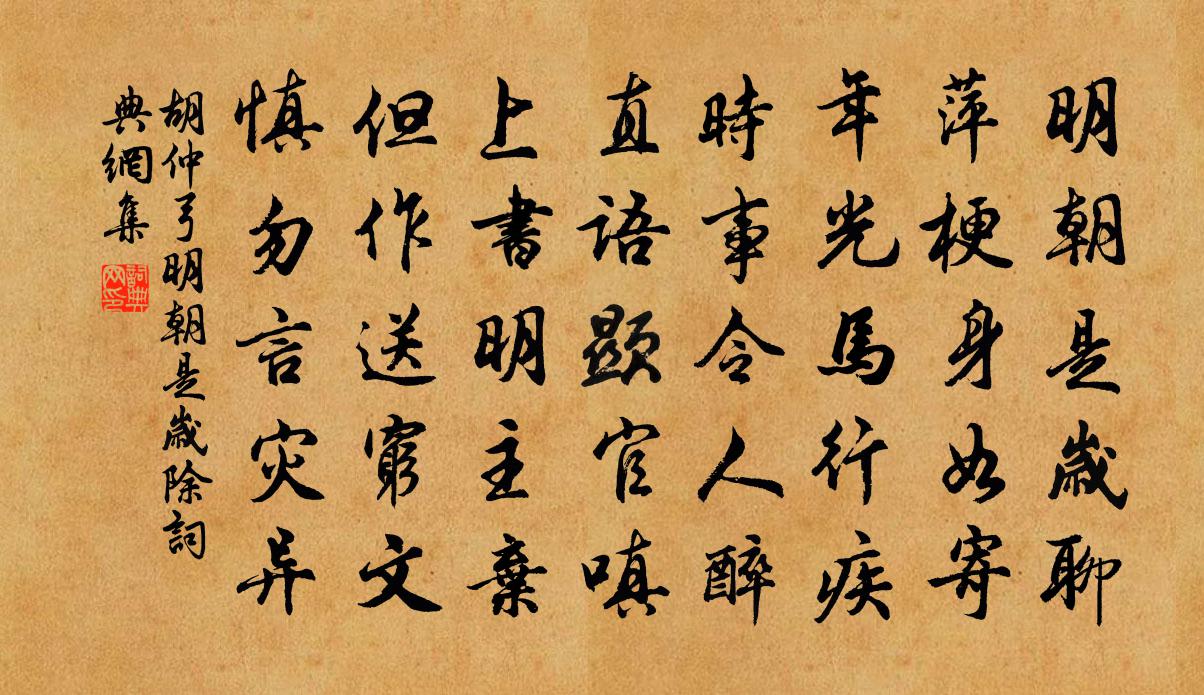 明朝是歲聊
萍梗身如寄
年光馬行疾
時事令人醉
直語顯官嗔
上書明主棄
但作送窮文
慎勿言災异
胡仲弓明朝是歲除詞
典網集
詞典
网印